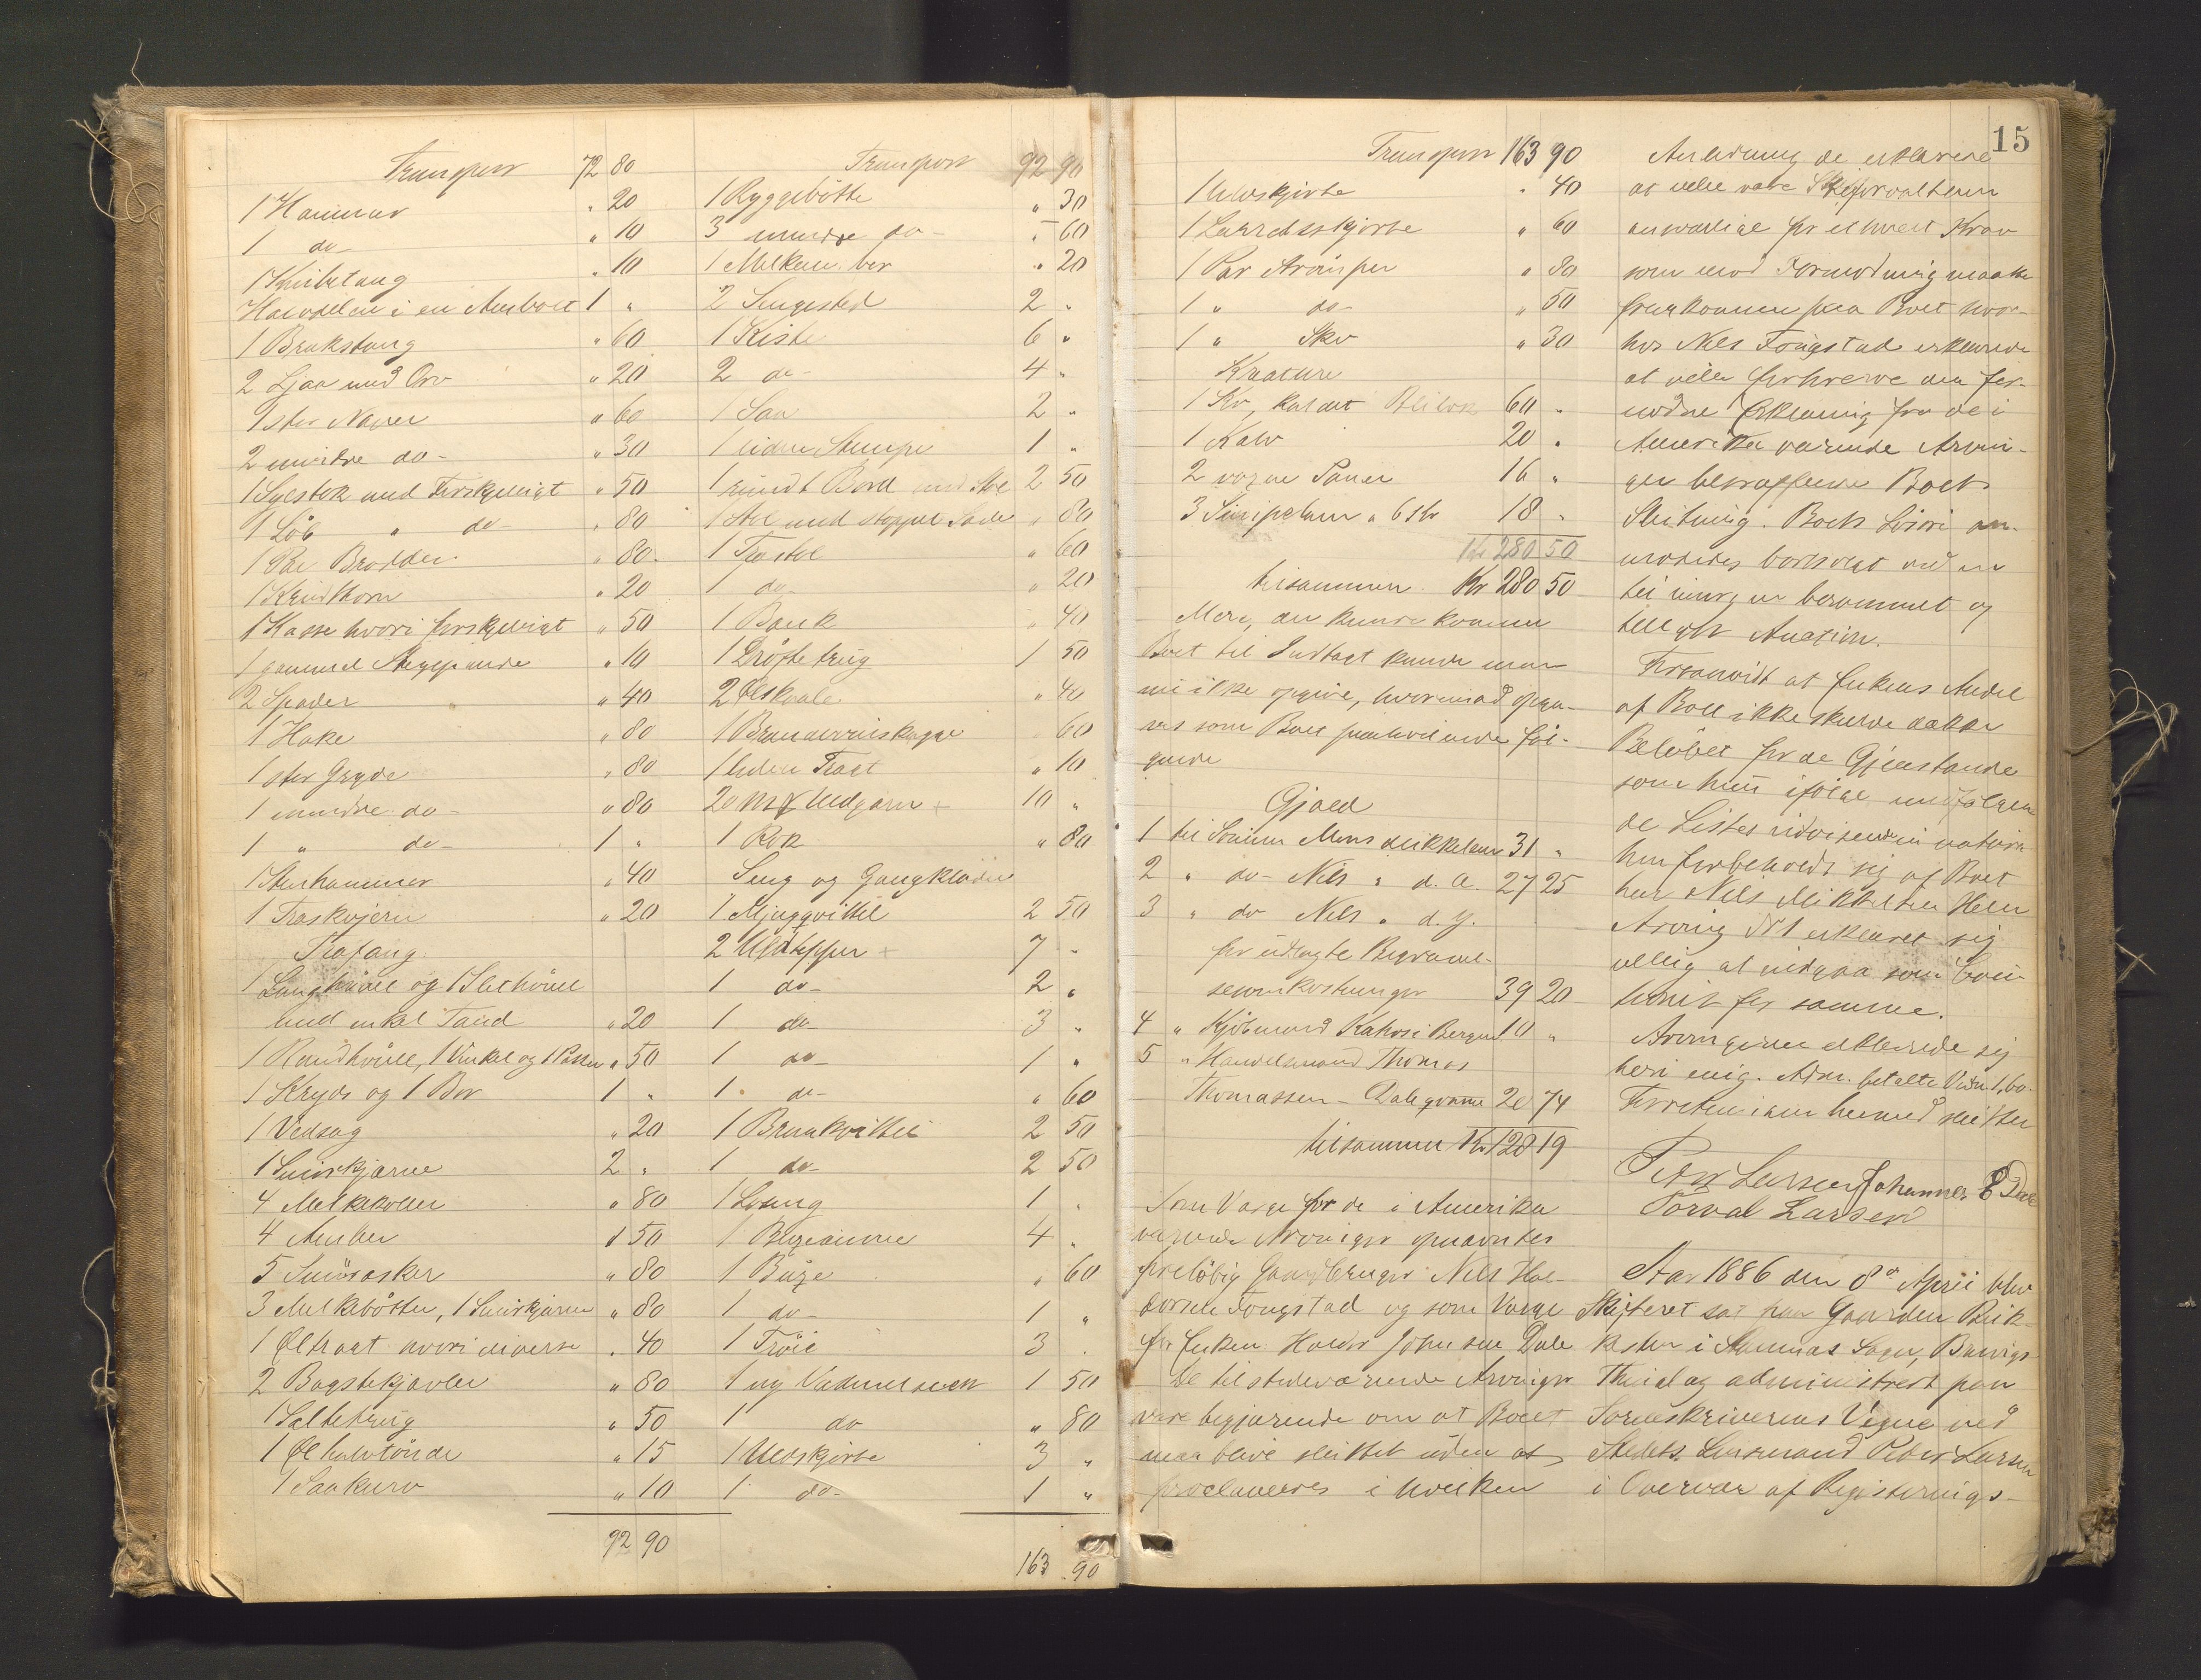 Transport 72 80
1 Hammer " 20
1 do- " 10
1 Knibetang " 10
Halvdelen i en Ambolt 1 "
1 Brækstang " 60
2 Ljaa med Orv " 20
1 stor Naver " 60
2 mindre do- " 30
1 Systok med Forskjelligt " 50
1 Løb " do- " 80
1 Par Brodder " 80
1 Krudthorn " 20
1 Kasse hvori forskjelligt " 50
1 gammel Steppande " 10
2 Spader " 40
1 Hake " 80
1 stor Gryde " 80
1 mindre do- " 80
1 " do- 1 "
1 Stenhammer " 40
1 Traskojern " 20
Trafang
1 Langhövel og 1 Slethövel
med enkel Tand " 20
1 Rundhövel, 1 Vinkel og 1 Passer " 50
1 Kryds og 1 Bor 1 "
1 Vedsag " 20
1 Smörkjærne 2 "
4 Melkekoller " 80
4 Ambar " 50
5 Smörasker " 80
3 Melkebötter, 1 Smörkjærne " 80
1 Öltragt hvori diverse " 40
2 Bagstekjævler " 80
1 Saltetrug " 50
1 Öl halvtönde " 15
1 Saakurv " 10
92 90
Transport 92 90
1 Ryggebötte " 30
3 mindre do- " 60
1 Melkeambar " 20
2 Sengested 2 "
1 Kiste 6 "
2 do- 4 "
1 Saa 2 "
1 liden Stampe 1 "
1 rundt Bord med Stol 2 50
1 Stol med stoppet Sæde " 80
1 Træstol " 60
1 do " 20
1 Bænk " 40
1 Dröftetrug 1 50
2 Ölskaale " 40
1 Brændevinskagge 60
1 liden Tragt " 10
20 Mk Uldgarn + 10 "
1 Rok " 80
Seng og Gangklæder
1 Mjuggvittil 2 50
2 Uldtepper + 7 "
1 do- 2 "
1 do- 3 "
1 do- 1 "
1 do- " 60
1 Brunkvittel 2 50
1 do- 2 50
1 1 "
1 4 "
1 Buxe " 60
1 do- 1 "
1 Tröie 3 "
1 ny 1 50
1 do " 80
1 Uldskjorte 3 "
1 do- 1 "
163 90
15
Transport 163 90
1 Uldskjorte " 40
1 Lærredsskjorte " 60
1 Par Strömper " 80
1 " do- " 50
1 " Sko " 30
Kreature
1 Ko, kaldet 60 "
1 Kalv 20 "
2 voxne Sauer 16 "
3 " 6 Kr 18 "
Kr 280 50
tilsammen Kr 280 50
Mere, der kunde komme
Boet til Indtægt kunde man
nu ikke opgive, hvorimod opga-
ves som Boet paahvilende föl-
gende
Gjæld
1 til Sönnen Mons Mikkelsen 31 "
2 " do- Nils " d. æ. 27 25
3 " do Nils " d. y.
for udlagte Begravel-
sesomkostninger 39 20
4 " Kjöbmand i Bergen 10 "
5 " Handelsmand Thomas
Thomassen - 20 74
tilsammen Kr 128 19
Som Værge for de i Amerika
værende Arvinger opnævntes
forelöbig Gaardbruger Nils Hal-
dorsen Fongstad og som Værge
for Enken Haldor Johnsen Dale
De tilstedeværende Arvinger
vare begjærende om at Boet
maa blive sluttet uden at
proclameres i hvilken
Anledning de erklærede
at ville være Skifteforvalteren
ansvarlige for ethvert Krav
som mod Formodning maatte
fremkomme paa Boet hvor-
hos Nils Fongstad erklærede
at ville forhverve den for-
nödne Erklæring fra de i
Amerika værende Arvin-
ger betræffende Boets
Slutning. Boets Lösöre an-
modedes bortsolgt ved en
til imorgen berammet og
tillyst Auction.
Forsaavidt at Enkens Andel
af Boet ikke skulde dække
Belöbet for de Gjenstande
som hun ifölge medfölgen-
de Liste udvisende in natura
hun forbeholdt sig af Boet
har Nils Mikkelsen Helle
Arving N 1 erklæret sig
villig at indgaa som Cau-
tionist for samme.
Arvingerne erklærede sig
heri enig. Adm. betalte Vidn 1,60.
Forretningen hermed sluttet
Peter Larsen Johannes E Dale
Torval Larsen
Aar 1886 den 8de April blev
Skifteret sat paa Gaarden
i Stamnæs Sogn, Bruvigs
Thinglag administreret paa
Sorenskriverens Vegne ved
Stedets Lensmand Peder Larsen
i Overvær af Registrerings-